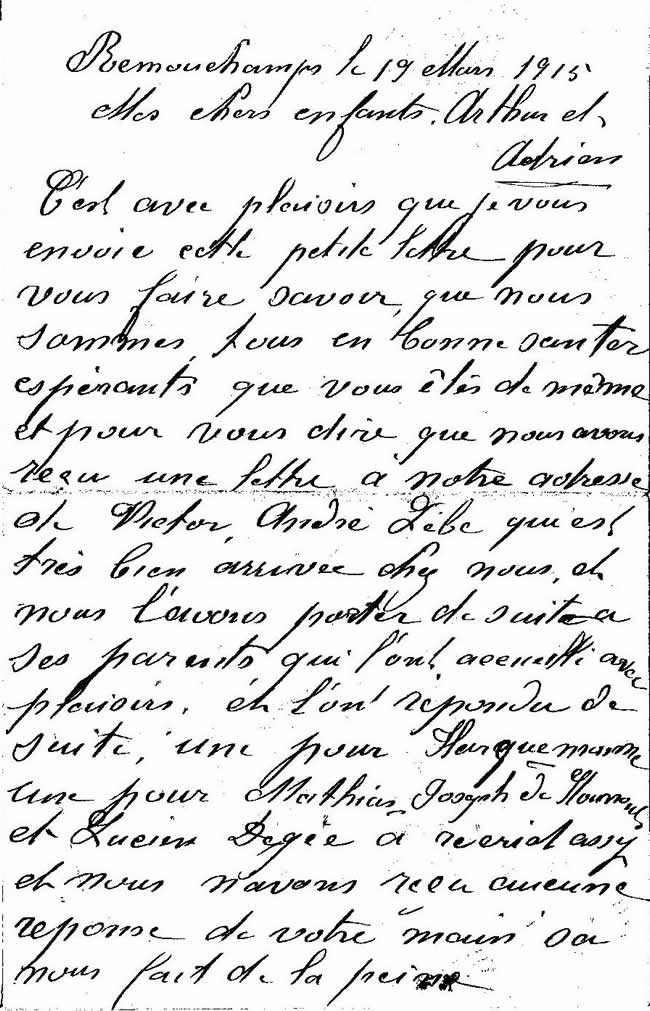 Remouchamps le 19 Mars 1915
Mes chers enfants. Arthur et
Adrien
C'est avec plaisirs que je vous
envoie cette petite lettre pour
vous faire savoir que nous
sommes tous en bonne santer
espérants que vous êtes de même
et pour vous dire que nous avons
reçu une lettre à notre adresse
de Victor André qui est
très bien arrivée chez nous, et
nous l'avons porter de suite a
ses parents qui l'ont accueilli avec
plaisirs. et l'ont répondu de
suite, une pour
une pour Mathias Joseph de
et Lucien Degée à
et nous navons reçu aucune
reponse de votre main sa
nous fait de la peine